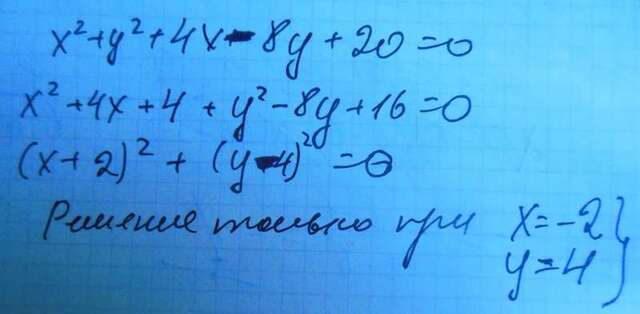 x² + y² + 4x - 8y + 20 = 0
x² + 4x + 4 + y² - 8y + 16 = 0
(x + 2)² + (y - 4)² = 0
Решение только при x = -2 }
y = 4